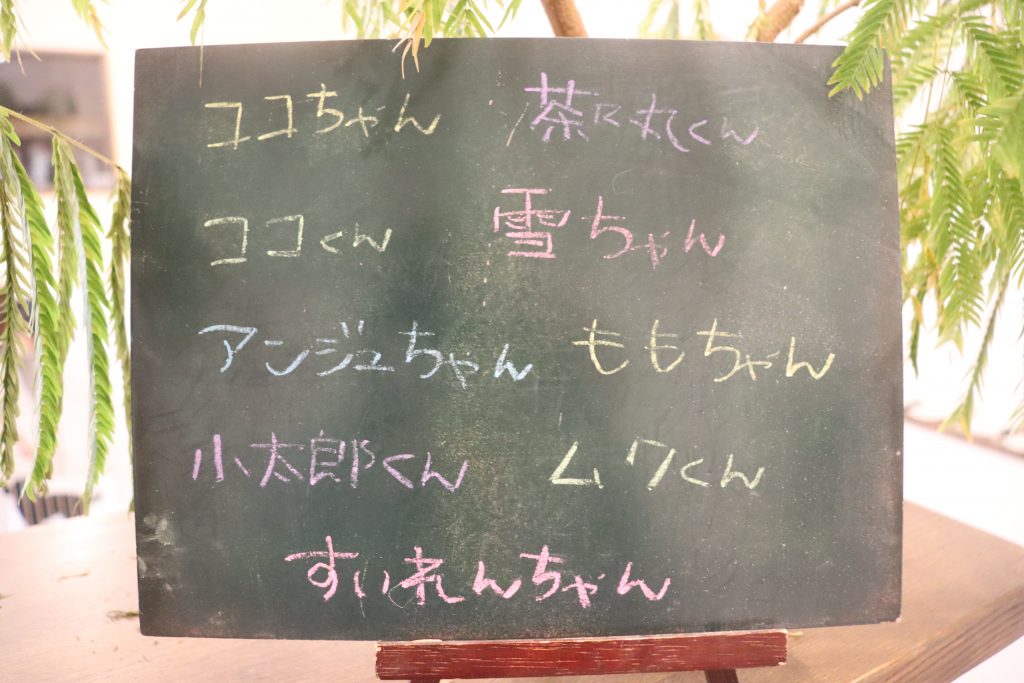 ココちゃん 茶々丸くん
ココくん 雪ちゃん
アンジュちゃん ももちゃん
小太郎くん ムクくん
すいれんちゃん